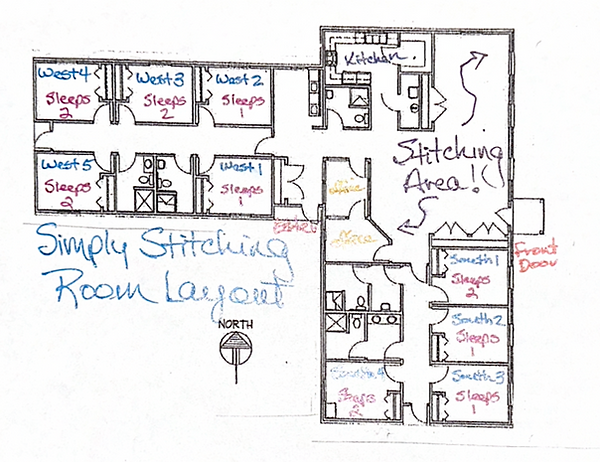 West 4
Sleeps
2
West 3
Sleeps
2
West 2
Sleeps
1
Kitchen.
Stitching
Area!
West 5
Sleeps
2
West 1
Sleeps
1
Office
Office
Front
Door
Simply Stitching
Room Layout
NORTH
South 1
Sleeps
2
South 2
Sleeps
1
South 3
Sleeps
1
South 4
Sleeps
2